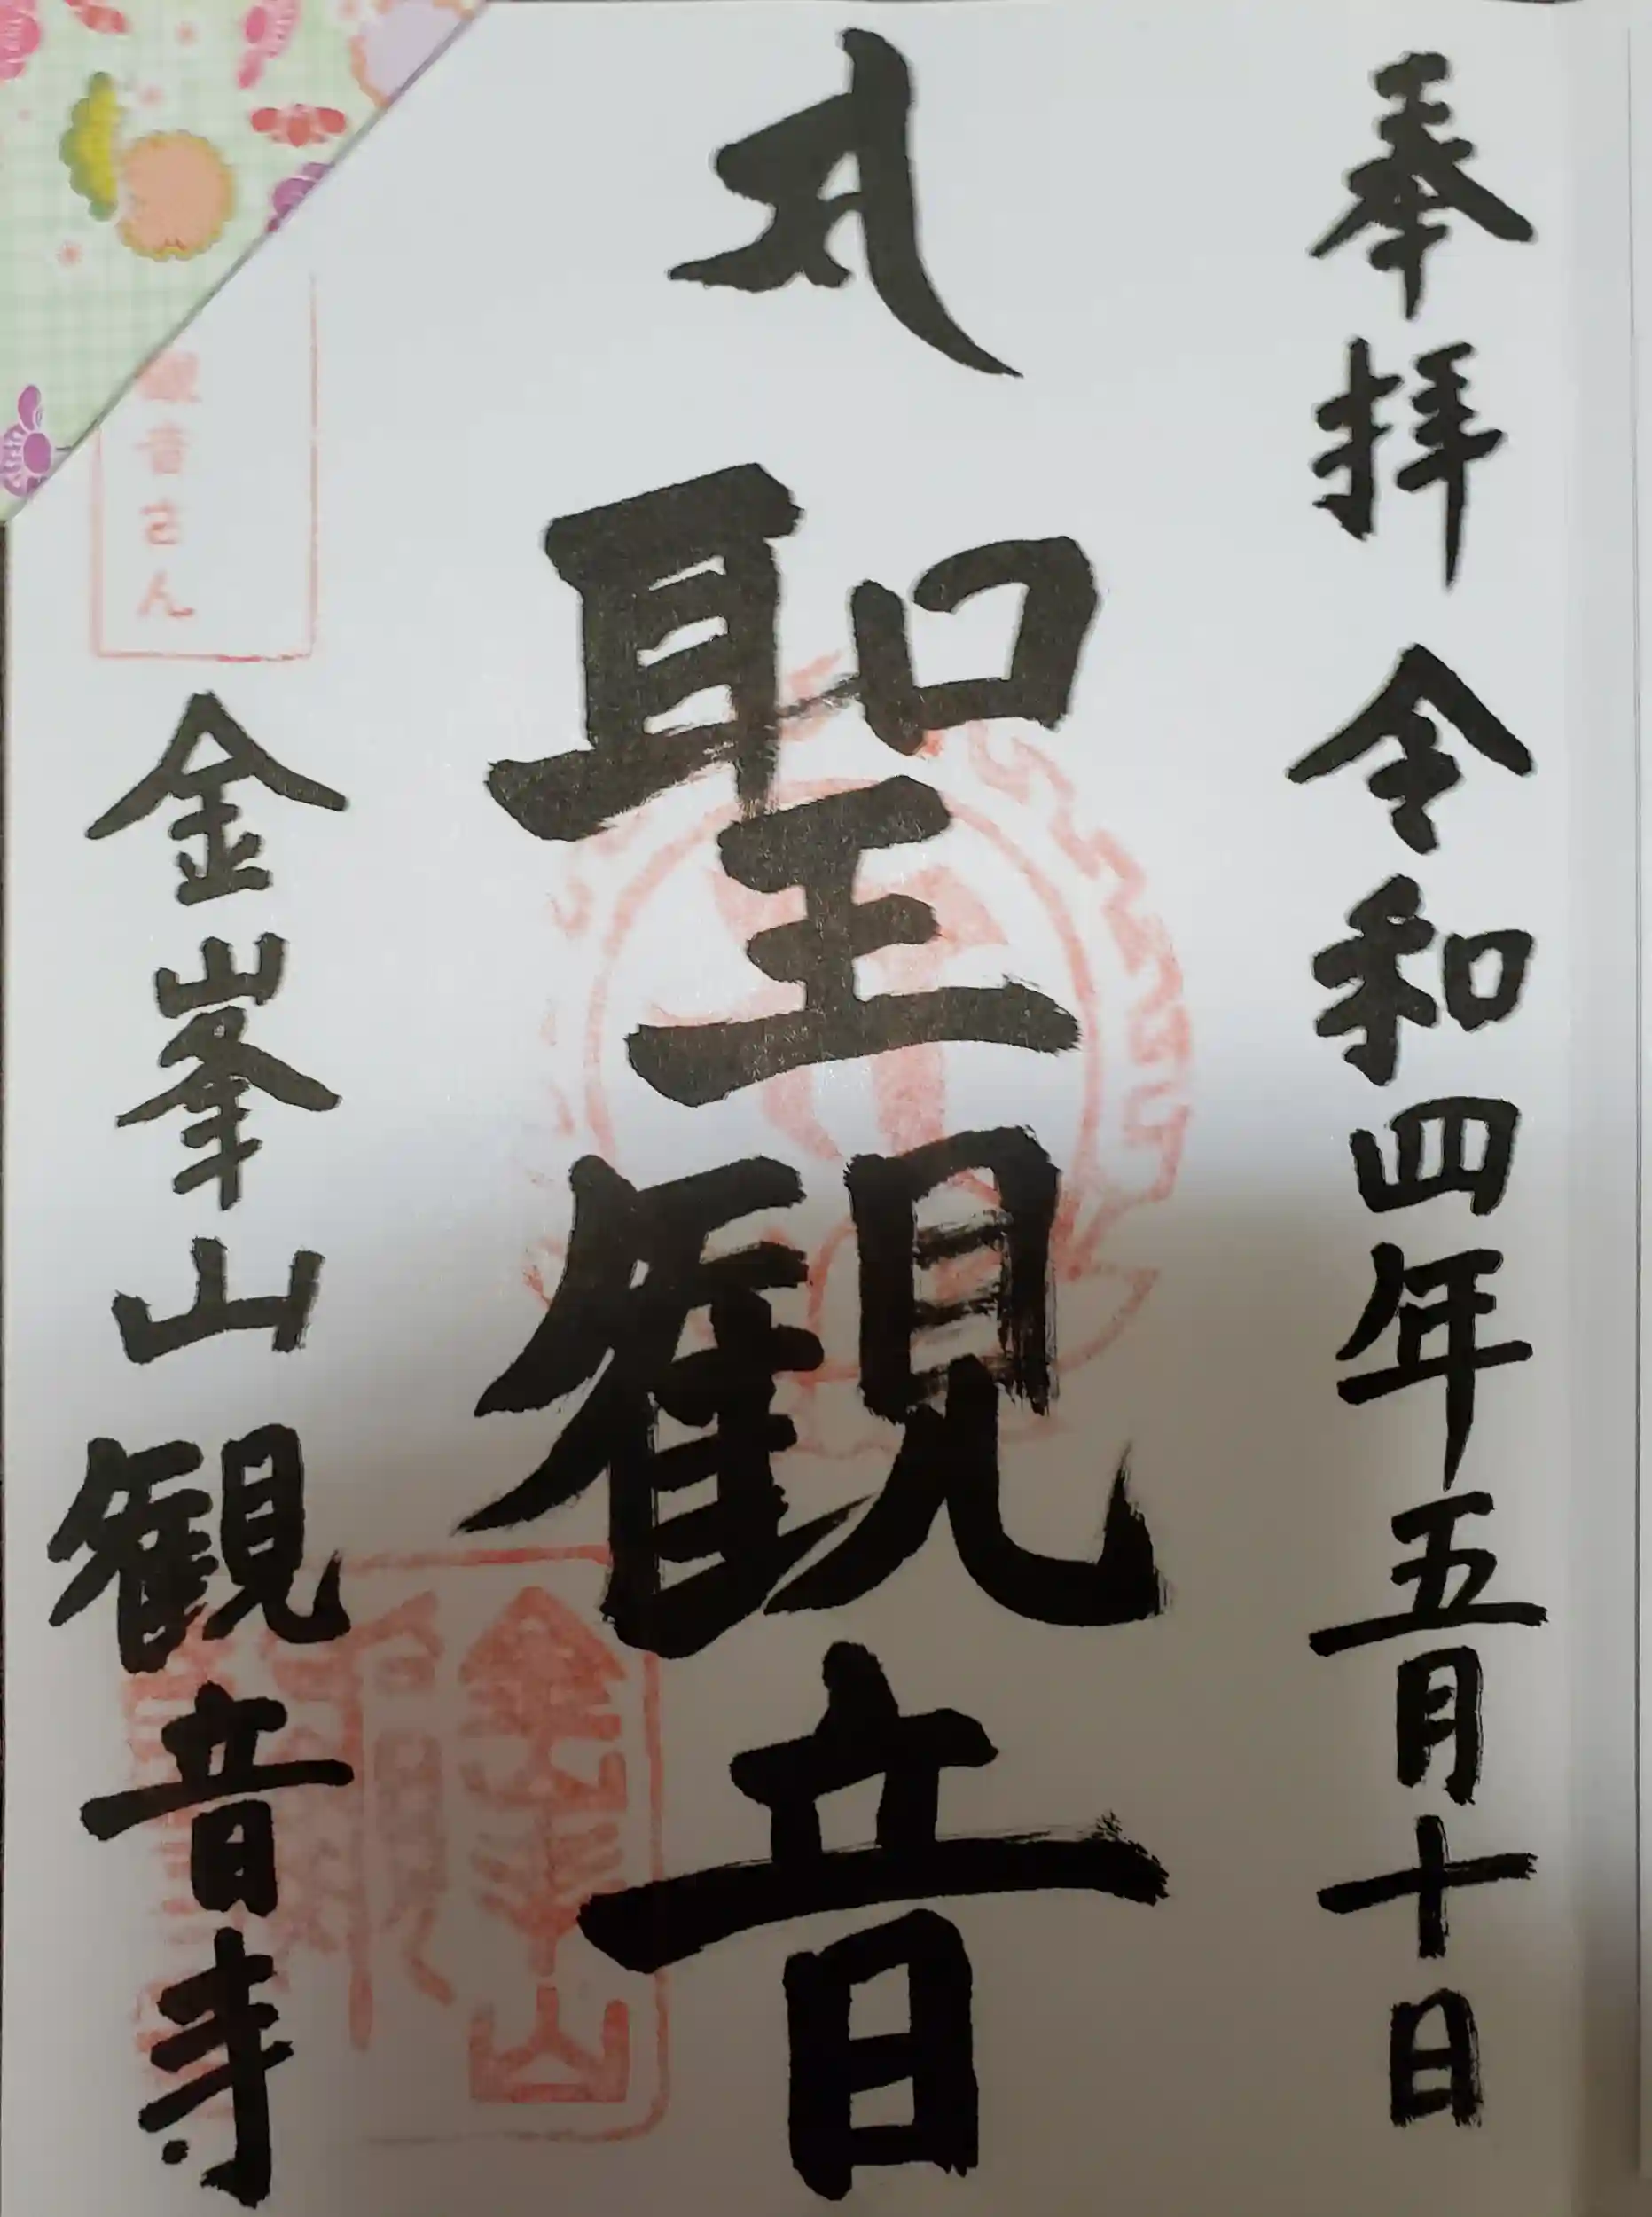 奉拝 令和四年五月十日
聖観音
金峯山 観音寺
観音さん